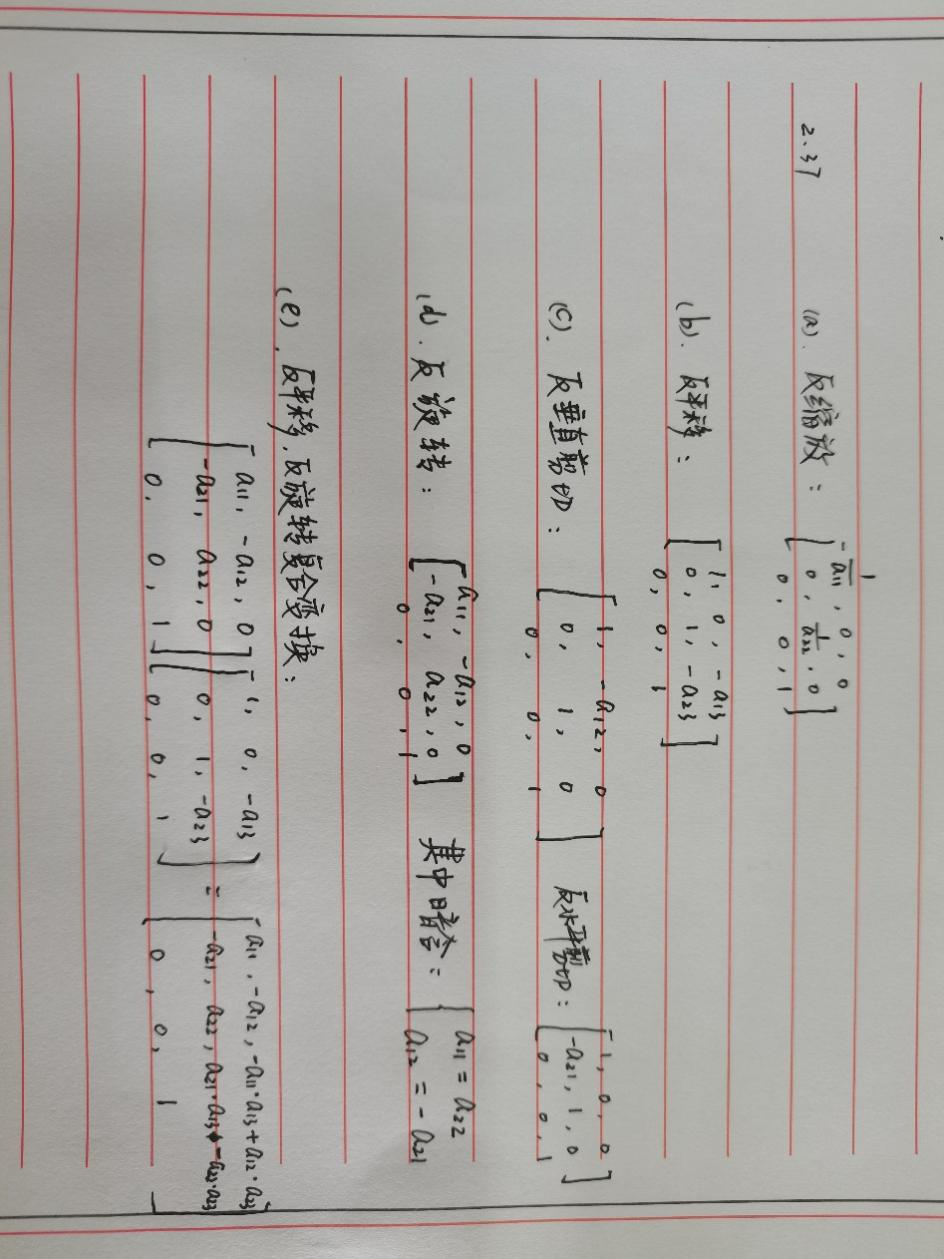 2.37 (a). 反缩放: [1/a11, 0, 0
0, 1/a22, 0
0, 0, 1]
(b). 反平移: [1, 0, -a13
0, 1, -a23
0, 0, 1]
(c). 反垂直剪切: [1, -a12, 0
0, 1, 0
0, 0, 1] 反水平剪切: [1, 0, 0
-a21, 1, 0
0, 0, 1]
(d). 反旋转: [a11, -a12, 0
-a21, a22, 0
0, 0, 1] 其中暗含: { a11 = a22
a12 = -a21
(e). 反平移, 反旋转复合变换:
[a11, -a12, 0
-a21, a22, 0
0, 0, 1] [1, 0, -a13
0, 1, -a23
0, 0, 1] = [a11, -a12, -a11·a13+a12·a23
-a21, a22, a21·a13-a22·a23
0, 0, 1]